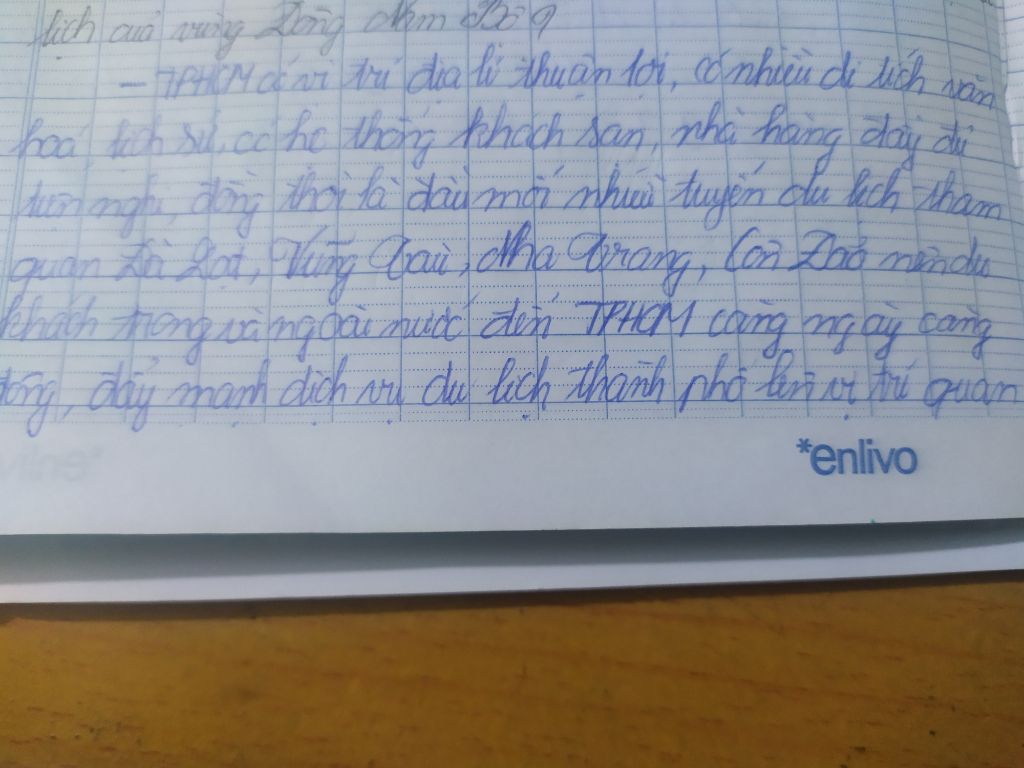 lịch của vùng Đông Nam Bộ ?
- TPHCM có vị trí địa lí thuận lợi, có nhiều di tích văn
hoá, lịch sử, có hệ thống khách sạn, nhà hàng đầy đủ
tiện nghi, đồng thời là đầu mối nhiều tuyến du lịch tham
quan Đà Lạt, Vũng Tàu, Nha Trang, Côn Đảo nên du
khách trong và ngoài nước đến TPHCM càng ngày càng
đông, đẩy mạnh dịch vụ du lịch thành phố lên vị trí quan
*enlivo